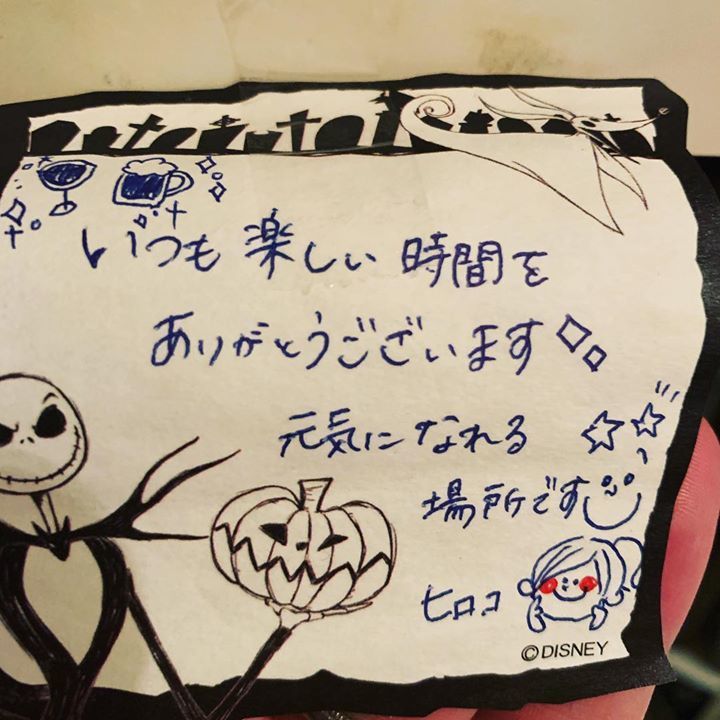 いつも楽しい時間を
ありがとうございます
元気になれる
場所です
ヒロコ
©DISNEY